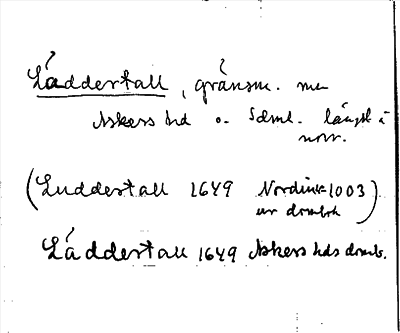 Låddertall, gränsm. m
Askers hd o. Sdml. längst i
norr.
(Luddertall 1649 Nordink 1003)
ur dombok
Låddertall 1649 Askers hds domb.